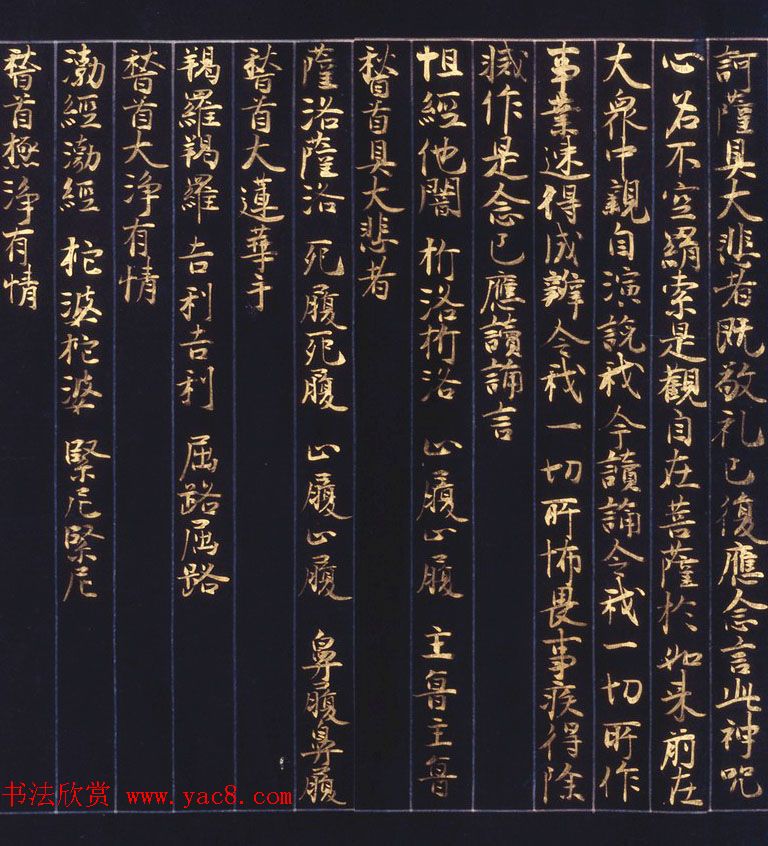 訶薩具大悲者既敬礼已復應念言此神呪
心名不空羂索是觀自在菩薩於如来前在
大衆中親自演説我今讀誦令我一切所作
事業速得成辦令我一切所怖畏事疾得除
滅作是念已應讀誦言
怛經他闇 析洛析洛 止履止履 主魯主魯
稽首具大悲者
薩洛薩洛 死履死履 止履止履 鼻履鼻履
稽首大蓮華手
羯羅羯羅 吉利吉利 屈路屈路
稽首大浄有情
渤經渤經 柁婆柁婆 緊尼緊尼
稽首極浄有情
书法欣赏 www.yac8.com